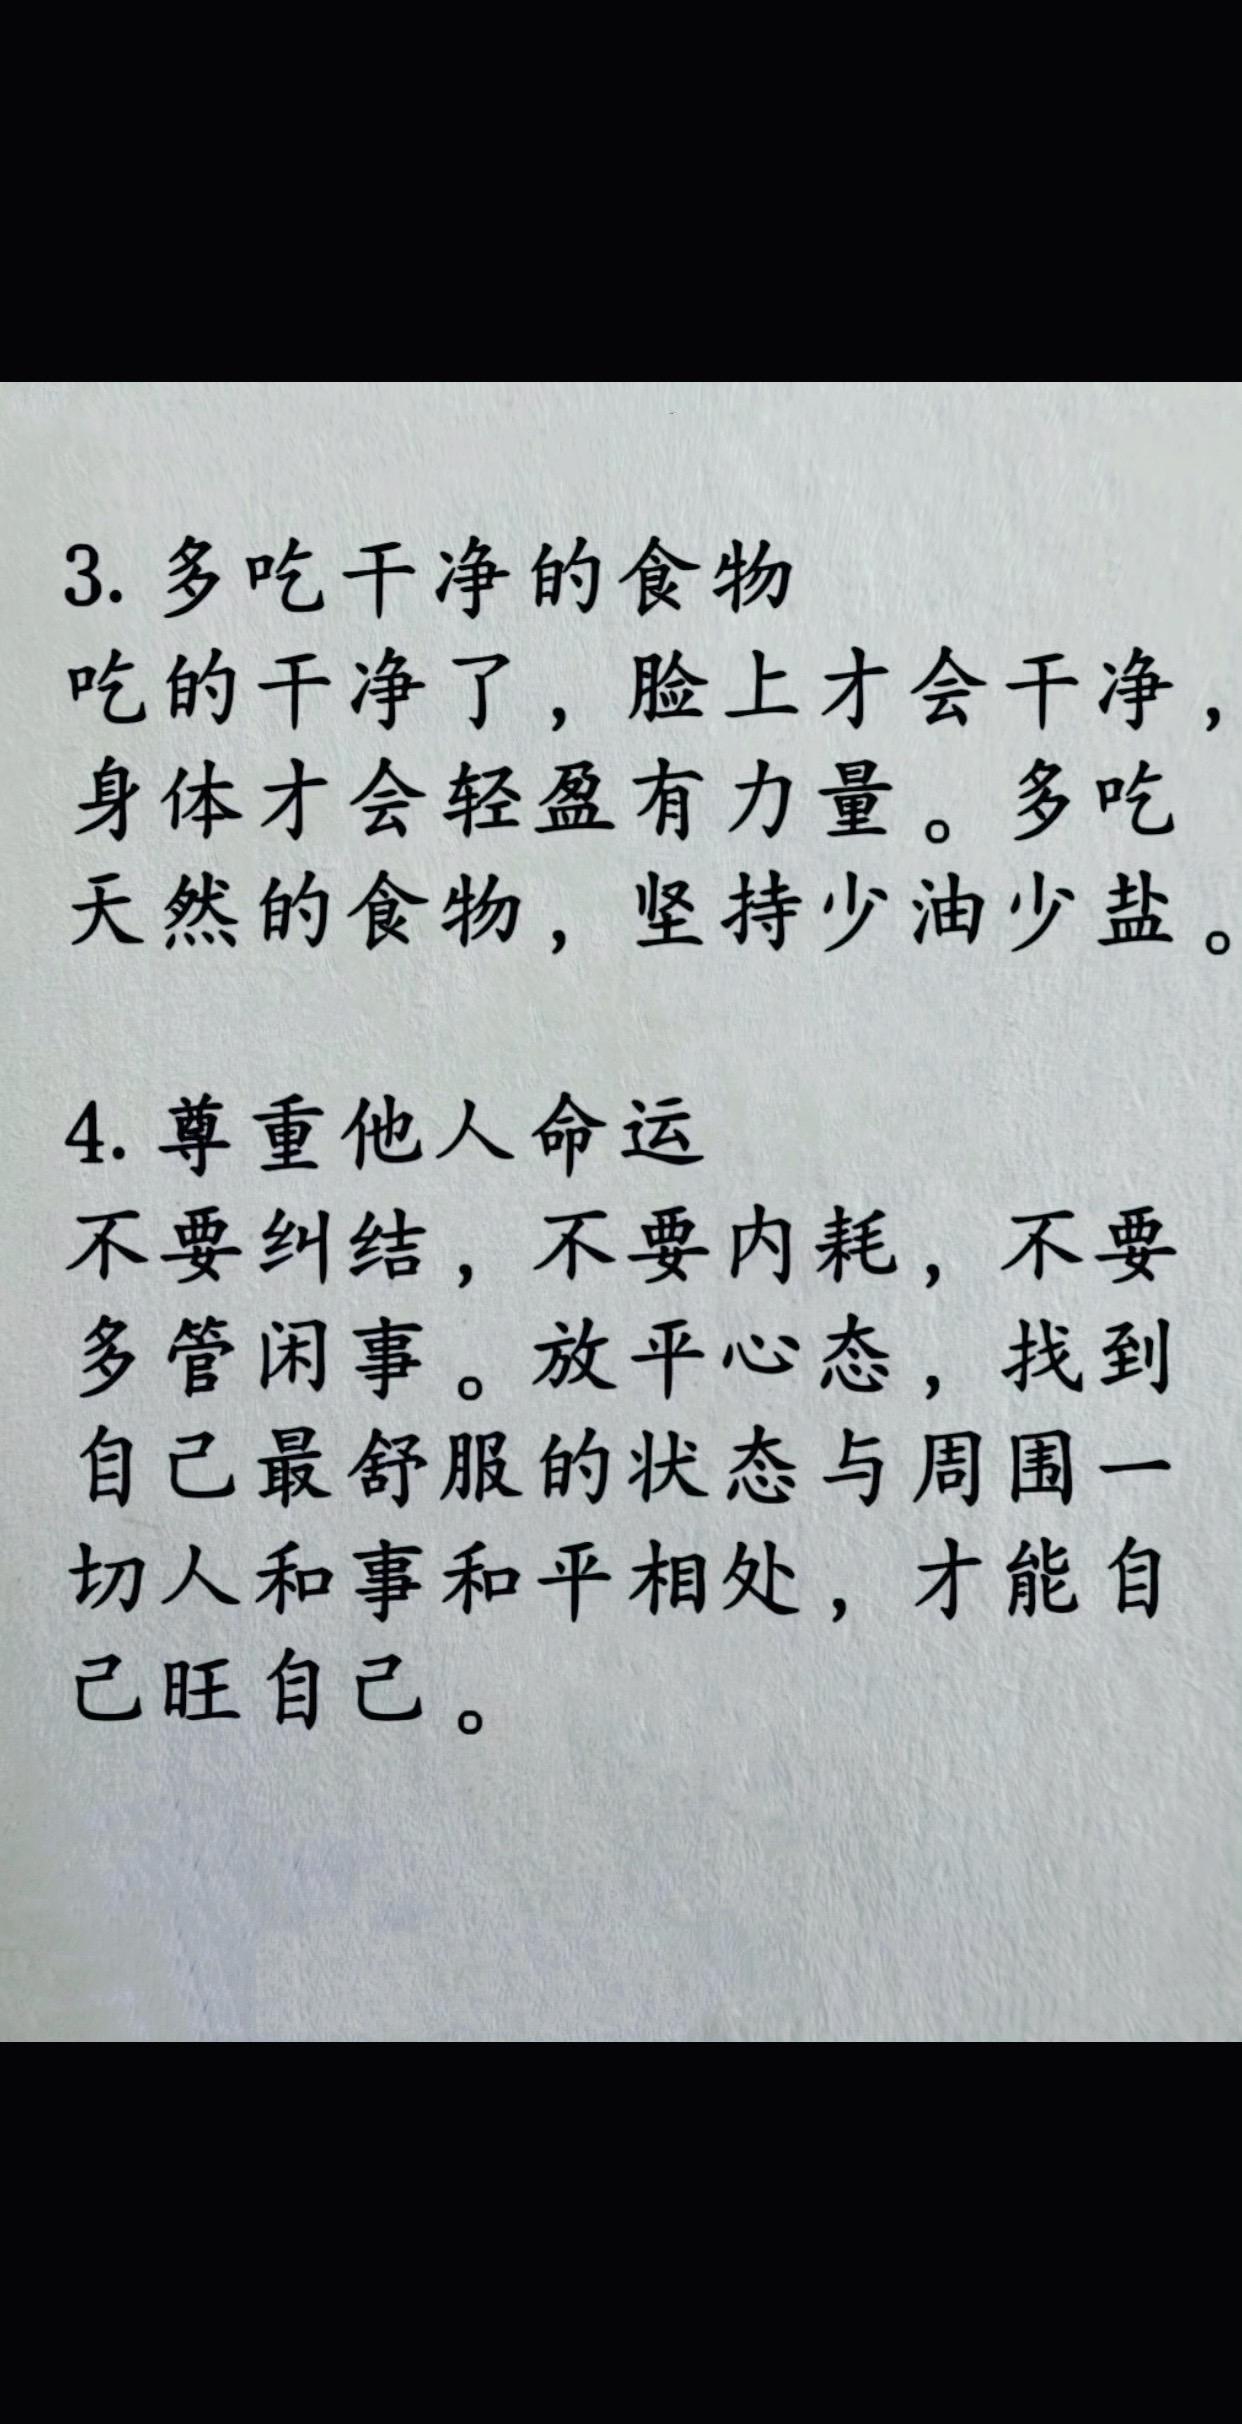 3. 多吃干净的食物
吃的干净了，脸上才会干净，
身体才会轻盈有力量。多吃
天然的食物，坚持少油少盐。
4. 尊重他人命运
不要纠结，不要内耗，不要
多管闲事。放平心态，找到
自己最舒服的状态与周围一
切人和事和平相处，才能自
己旺自己。